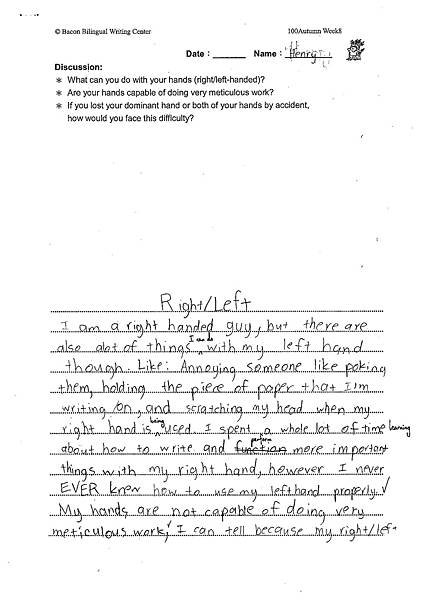 © Bacon Bilingual Writing Center 100Autumn Week8
Date : Name : Henry
Discussion:
∗ What can you do with your hands (right/left-handed)?
∗ Are your hands capable of doing very meticulous work?
∗ If you lost your dominant hand or both of your hands by accident,
how would you face this difficulty?
Right/Left
I am a right handed guy, but there are
also alot of things I can do with my left hand
though. Like: Annoying someone like poking
them, holding the piece of paper that I'm
writing on, and scratching my head when my
right hand is being used. I spent a whole lot of time learning
about how to write and function perform more important
things with my right hand, however I never
EVER knew how to use my lefthand properly.
My hands are not capable of doing very
meticulous work, I can tell because my right/left